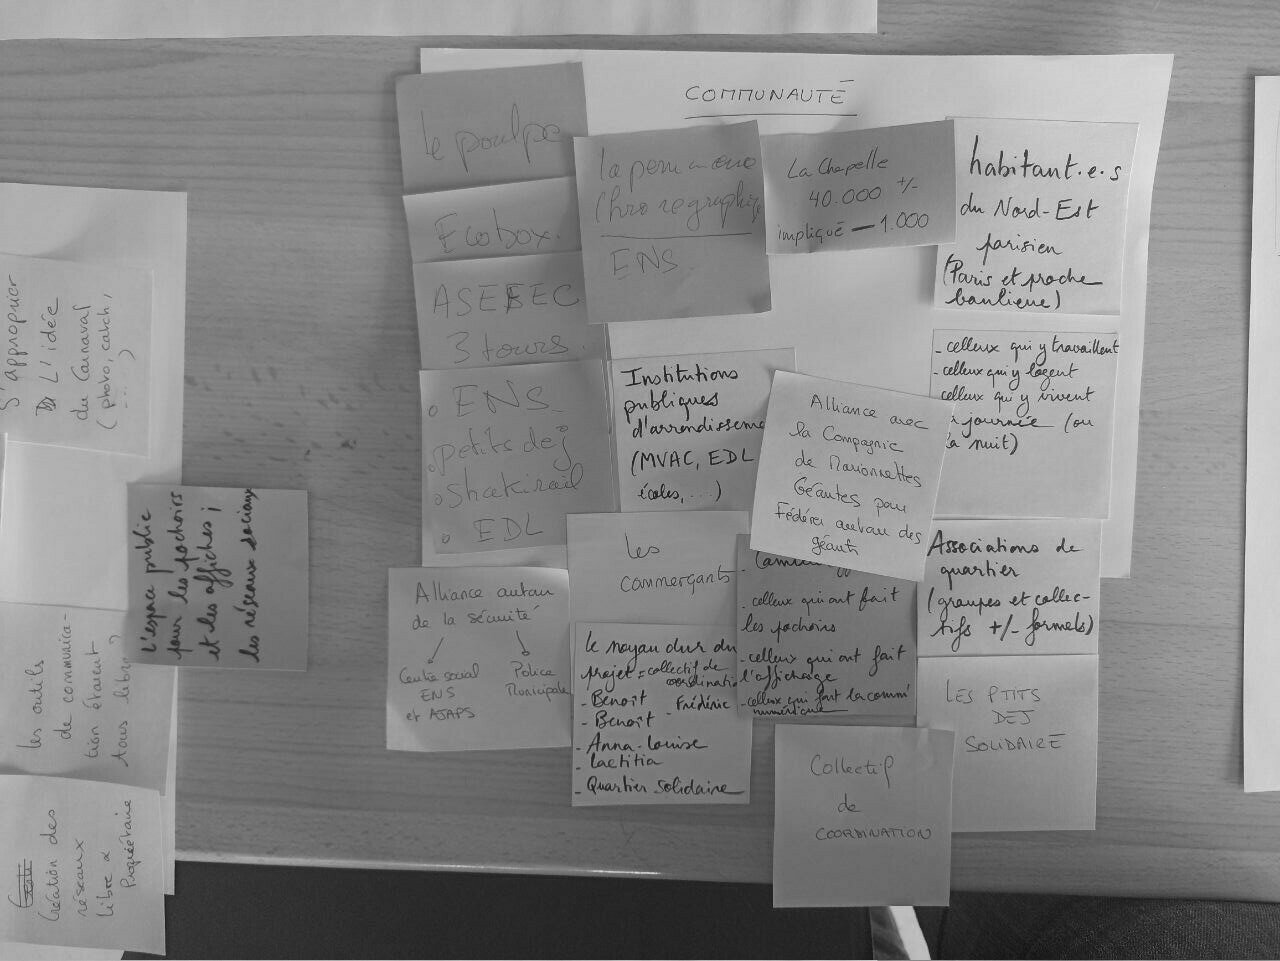 COMMUNAUTÉ
le poulpe
Ecobox.
ASEFEC
3 tours.
o ENS
o petits dej
o Shakirail
o EDL
la
Chorégraphique
ENS
La Chapelle
40.000 +/-
impliqué — 1.000
habitant·e·s
du Nord-Est
parisien
(Paris et proche
banlieue)
- celleux qui y travaillent
- celleux qui y logent
celleux qui y vivent
journée (ou
la nuit)
Institutions
publiques
d'arrondisseme
(MVAC, EDL
écoles, ...)
Alliance avec
la Compagnie
de Marionnettes
Géantes pour
Fédérer autour des
géants
Associations de
quartier
(groupes et collec-
tifs +/- formels)
LES PTITS
DEJ
SOLIDAIRE
les
commerçants
Alliance autour
de la sécurité
Centre social
ENS
et AJAPS
Police
Municipale
le noyau dur du
projet = collectif de
coordinatio
- Benoît
- Frédéric
- Benoît
- Anna-Louise
- Laetitia
- Quartier Solidaire
- celleux qui ont fait
les pochoirs
- celleux qui ont fait
l'affichage
- celleux qui font la comm'
numérique
Collectif
de
COORDINATION
S'approprier
L'idée
du Carnaval
(photo, catch,
...)
L'espace public
pour les pochoirs
et les affiches ;
les réseaux sociaux
les outils
de communica-
tion étaient
tous libres
Création des
réseaux
libre &
Propriétaire